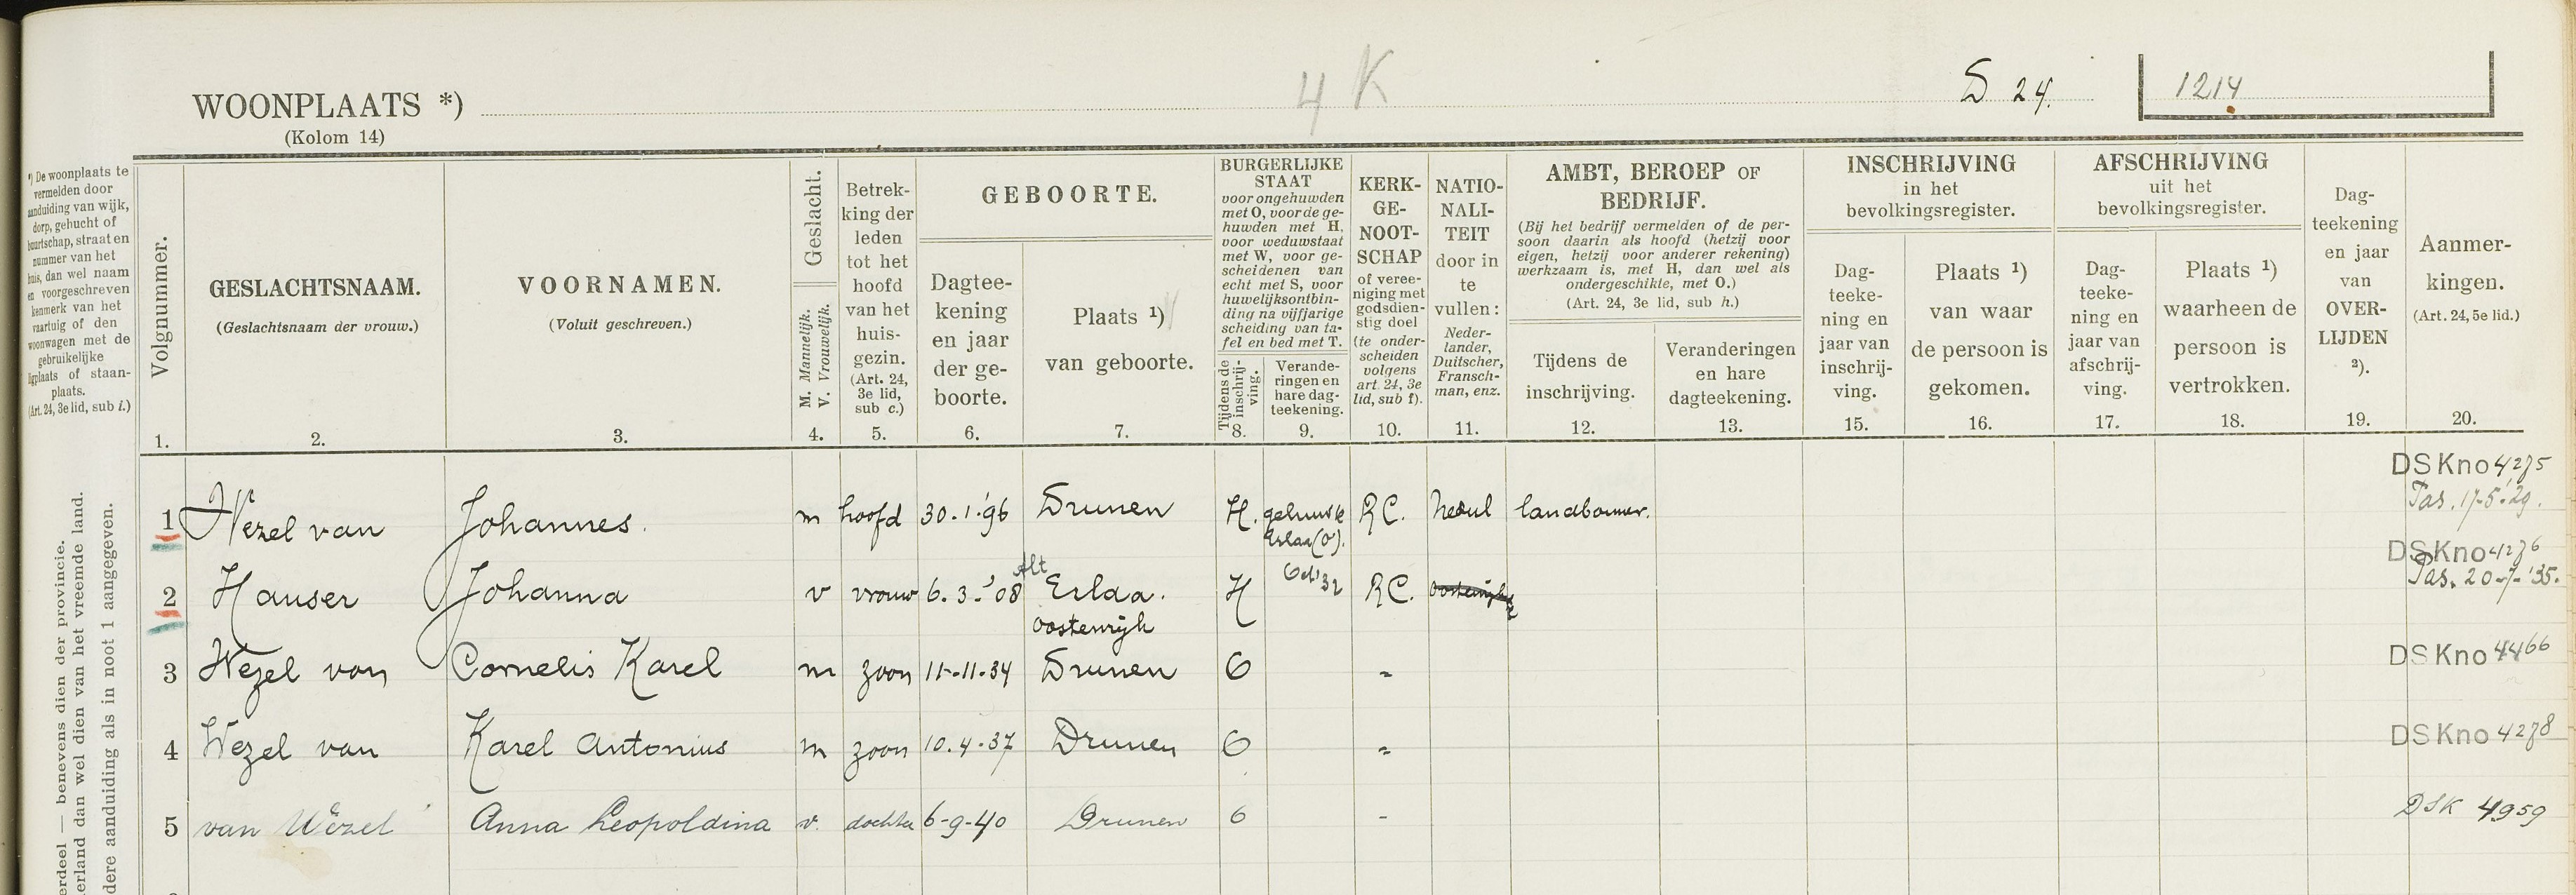 4 K
D 24.
1214
WOONPLAATS *)
(Kolom 14)
*) De woonplaats te
vermelden door
aanduiding van wijk,
dorp, gehucht of
buurtschap, straat en
nummer van het
huis, dan wel naam
en voorgeschreven
kenmerk van het
vaartuig of den
woonwagen met de
gebruikelijke
ligplaats of staan-
plaats.
(Art. 24, 3e lid, sub i.)
erdeel — benevens dien der provincie.
erland dan wel dien van het vreemde land.
dere aanduiding als in noot 1 aangegeven.
Volgnummer.
1.
GESLACHTSNAAM.
(Geslachtsnaam der vrouw.)
2.
VOORNAMEN.
(Voluit geschreven.)
3.
Geslacht.
M. Mannelijk.
V. Vrouwelijk.
4.
Betrek-
king der
leden
tot het
hoofd
van het
huis-
gezin.
(Art. 24,
3e lid,
sub c.)
5.
GEBOORTE.
Dagtee-
kening
en jaar
der ge-
boorte.
6.
Plaats ¹)
van geboorte.
7.
BURGERLIJKE
STAAT
voor ongehuwden
met O, voor de ge-
huwden met H,
voor weduwstaat
met W, voor ge-
scheidenen van
echt met S, voor
huwelijksontbin-
ding na vijfjarige
scheiding van ta-
fel en bed met T.
Tijdens de
inschrij-
ving.
8.
Verande-
ringen en
hare dag-
teekening.
9.
KERK-
GE-
NOOT-
SCHAP
of veree-
niging met
godsdien-
stig doel
(te onder-
scheiden
volgens
art. 24, 3e
lid, sub f).
10.
NATIO-
NALI-
TEIT
door in
te
vullen:
Neder-
lander,
Duitscher,
Fransch-
man, enz.
11.
AMBT, BEROEP OF
BEDRIJF.
(Bij het bedrijf vermelden of de per-
soon daarin als hoofd (hetzij voor
eigen, hetzij voor anderer rekening)
werkzaam is, met H, dan wel als
ondergeschikte, met O.)
(Art. 24, 3e lid, sub h.)
Tijdens de
inschrijving.
12.
Veranderingen
en hare
dagteekening.
13.
INSCHRIJVING
in het
bevolkingsregister.
Dag-
teeke-
ning en
jaar van
inschrij-
ving.
15.
Plaats ¹)
van waar
de persoon is
gekomen.
16.
AFSCHRIJVING
uit het
bevolkingsregister.
Dag-
teeke-
ning en
jaar van
afschrij-
ving.
17.
Plaats ¹)
waarheen de
persoon is
vertrokken.
18.
Dag-
teekening
en jaar
van
OVER-
LIJDEN
²).
19.
Aanmer-
kingen.
(Art. 24, 5e lid.)
20.
DSKno 4275
Pas. 17-5-'29.
1 Wezel van Johannes. m hoofd 30.1.'96 Drunen H. gehuwd R.C. Nederl landbouwer.
Erlaa (O).
DSKno 4276
Pas. 20-7-'35.
2 Hauser Johanna v vrouw 6.3.'08 Alt Erlaa. H Oct '32 R.C. Oostenrijk
Oostenrijk
3 Wezel van Cornelis Karel m zoon 11-11-34 Drunen O „ DSKno 4466
4 Wezel van Karel Antonius m zoon 10.4-37 Drunen O „ DSKno 4278
5 van Wezel Anna Leopoldina v. dochter 6-9-40 Drunen O - DSK 4959